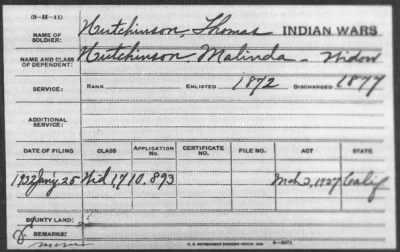 (3-H-11)
NAME OF SOLDIER: Hutchinson, Thomas INDIAN WARS
NAME AND CLASS OF DEPENDENT: Hutchinson Malinda - Widow
SERVICE: RANK ENLISTED 1872 DISCHARGED 1877
ADDITIONAL SERVICE:
DATE OF FILING CLASS APPLICATION No. CERTIFICATE NO. FILE NO. ACT STATE
1932 Jany. 25 Wid 1,710,893 Mch 3, 1927 Calif
BOUNTY LAND:
REMARKS:
U. S. GOVERNMENT PRINTING OFFICE